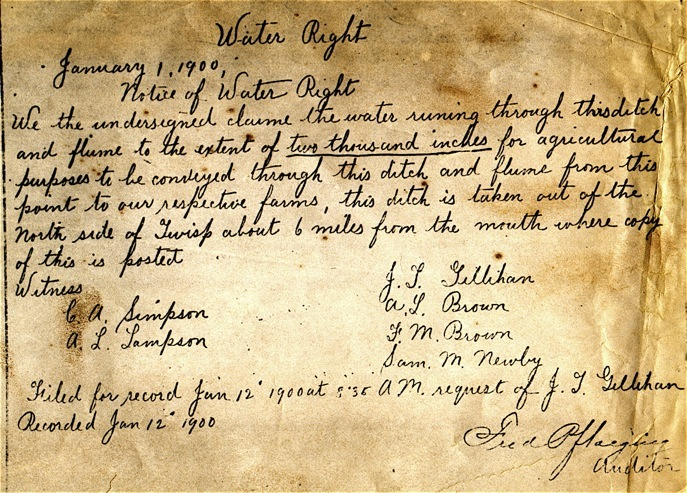 Water Right
January 1, 1900,
Notice of Water Right
We the undersigned claime the water runing through this ditch
and flume to the extent of two thousand inches for agricultural
purposes to be conveyed through this ditch and flume from this
point to our respective farms, this ditch is taken out of the
North side of Twisp about 6 miles from the mouth where copy
of this is posted
Witness
C. A. Simpson
A. L. Lampson
J. T. Gillihan
A. L. Brown
F. M. Brown
Sam. M. Newby
Filed for record Jan 12" 1900 at A.M. request of J. T. Gillihan
Recorded Jan 12" 1900
Fred
Auditor